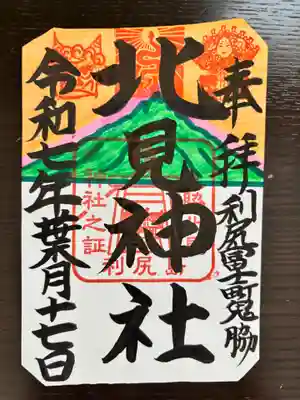 奉拝 利尻富士町鬼脇
北見神社
令和七年葉月十七日
神社之証
利尻島